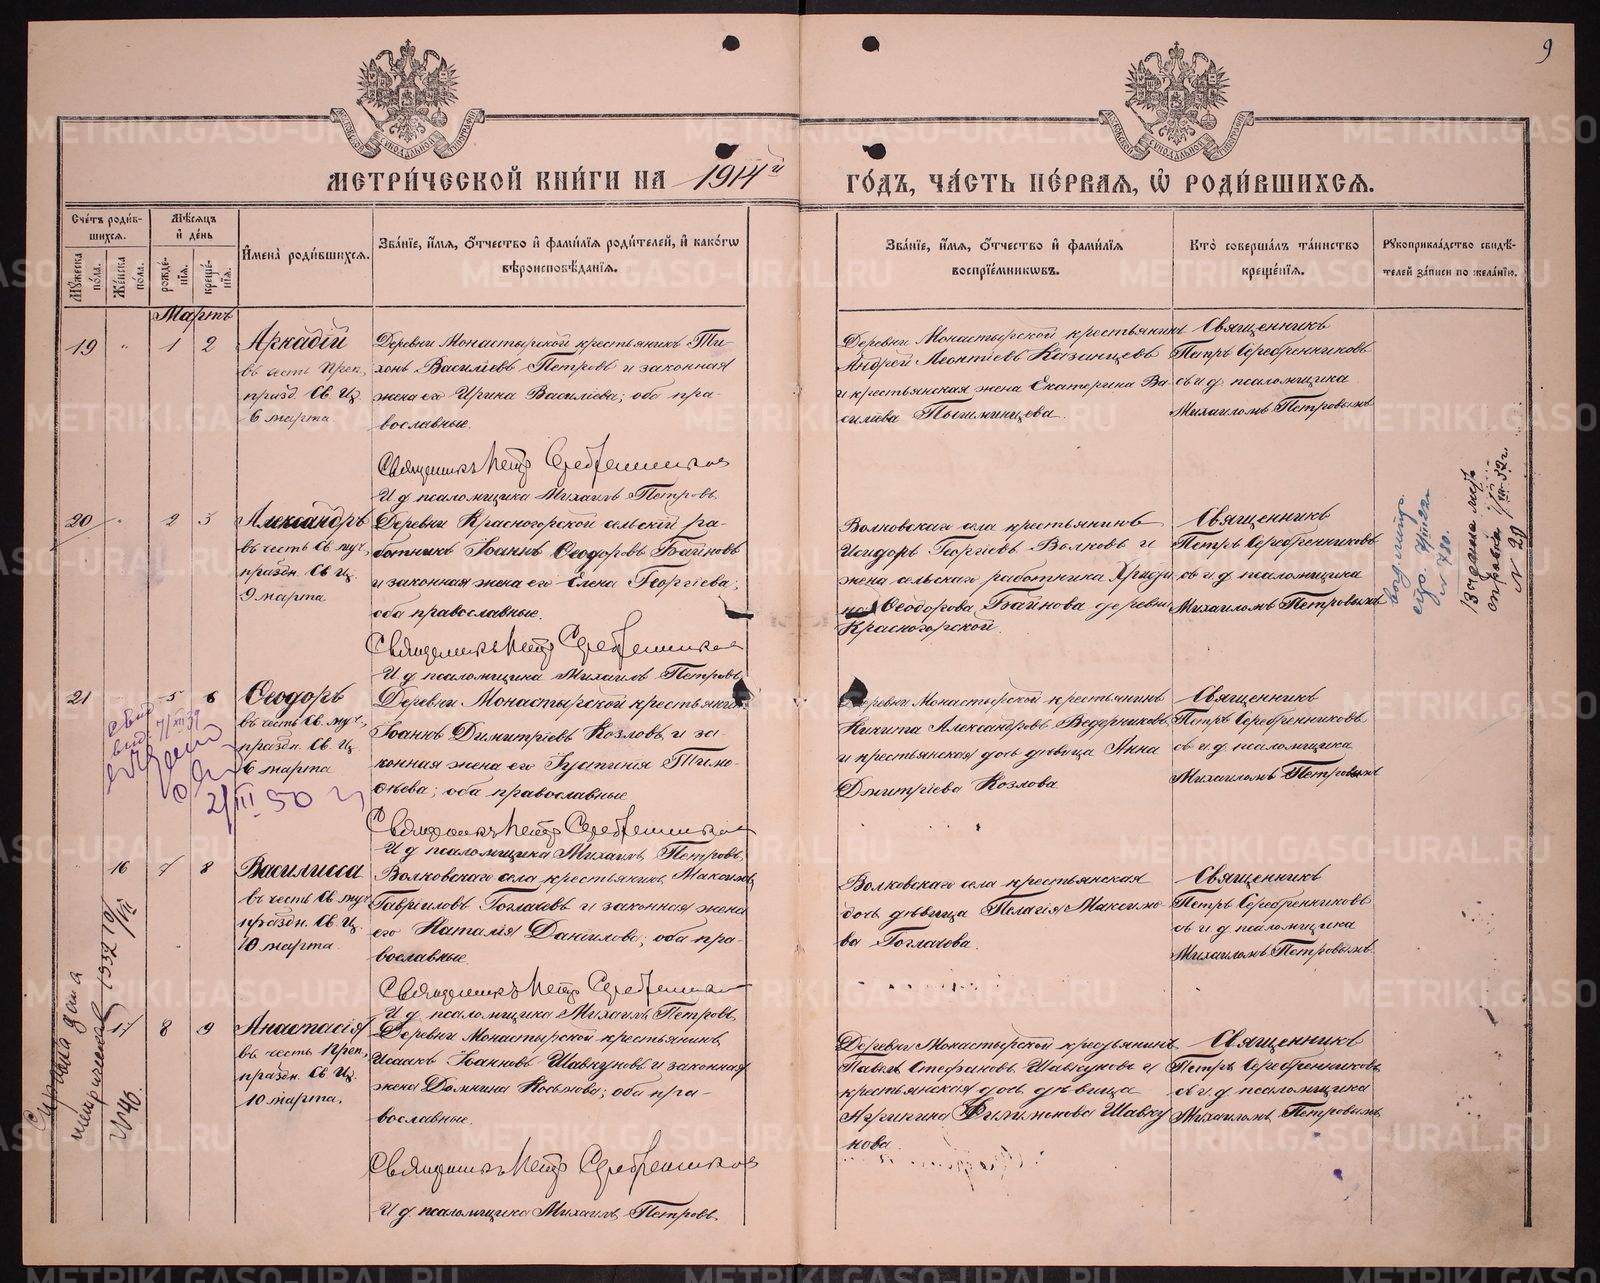 9
МЕТРИ́ЧЕСКОЙ КНИ́ГИ НА 1914й ГО́ДЪ, ЧА́СТЬ ПЕ́РВАЯ, Ѡ҆ РОДИ́ВШИХСЯ.
Счетъ роди́вшихся.
Мѣ́сяцъ и҆ де́нь
Мꙋжеска по́ла.
Же́нска по́ла.
рожде́нїѧ.
креще́нїѧ.
И҆мена̀ роди́вшихсѧ.
Зва́нїе, и҆́мѧ, ѻ҆́тчество и҆ фами́лїѧ роди́телей, и҆ како́гѡ
вѣроисповѣ́данїѧ.
Зва́нїе, и҆́мѧ, ѻ҆́тчество и҆ фами́лїѧ
воспрїе́мникѡвъ.
Кто̀ соверша́лъ та́инство
креще́нїѧ.
Рꙋкоприкла́дство свидѣ́-
телей за́писи по жела́нїю.
Мартъ
19 " 1 2
Аркадій
въ честь Преп.
празд. Св. Ц.
6 марта
Деревни Монастырской крестьянинъ Ти-
хонъ Василіевъ Петровъ и законная
жена его Ирина Василіева; оба пра-
вославные.
Священникъ Петр Серебренников
И д псаломщика Михаилъ Петровъ.
Деревни Монастырской крестьянинъ
Андрей Леонтіевъ Казанцевъ
и крестьянская жена Екатерина Ва-
силіева
Священникъ
Петръ Серебренниковъ
съ и.д. псаломщика
Михаиломъ Петровымъ
20 " 2 3
Александръ
въ честь Св. муч.
праздн. Св. Ц.
9 марта
Деревни Красногорской сельскій ра-
ботникъ Іоаннъ Ѳеодоровъ Байновъ
и законная жена его Елена Георгіева;
оба православные.
Священникъ Петр Серебренников
И д псаломщика Михаилъ Петровъ.
Волковскаго села крестьянинъ
Исидоръ Георгіевъ Волковъ и
жена сельскаго работника
Ѳеодорова Байнова деревни
Красногорской.
Священникъ
Петръ Серебренниковъ
съ и.д. псаломщика
Михаиломъ Петровымъ
№ 780.
Выдана
справка
№ 20
21 5 6
Ѳеодоръ
въ честь Св. муч.
праздн. Св. Ц.
6 марта
2/III 50 г
Деревни Монастырской крестьянинъ
Іоаннъ Димитріевъ Козловъ и за-
конная жена его Іустинія Тимо-
ѳеева; оба православные
Священникъ Петр Серебренников
И д псаломщика Михаилъ Петровъ.
Деревни Монастырской крестьянинъ
Никита Александровъ Ведерниковъ
и крестьянская дочь дѣвица Анна
Дмитріева Козлова
Священникъ
Петръ Серебренниковъ
съ и.д. псаломщика
Михаиломъ Петровымъ
16 7 8
Василисса
въ честь Св. муч.
праздн. Св. Ц.
10 марта
Волковскаго села крестьянинъ Максимъ
Гавріиловъ Гоглачевъ и законная жена
его Наталія Даніилова; оба пра-
вославные.
Священникъ Петр Серебренников
И д псаломщика Михаилъ Петровъ.
Волковскаго села крестьянская
дочь дѣвица Пелагія Максимо-
ва Гоглачева.
Священникъ
Петръ Серебренниковъ
съ и.д. псаломщика
Михаиломъ Петровымъ.
Справка дана
1932
№ 46.
17 8 9
Анастасія
въ честь Преп.
праздн. Св. Ц.
10 марта.
Деревни Монастырской крестьянинъ
Исаакъ Іоанновъ Шавкуновъ и законная
жена Домнина Косьмова; оба пра-
вославные.
Священникъ Петр Серебренников
И д псаломщика Михаилъ Петровъ.
Деревни Монастырской крестьянинъ
Павелъ Стефановъ Шавкуновъ и
крестьянская дочь дѣвица
Филимонова Шавку
нова.
Священникъ
Петръ Серебренниковъ
съ и.д. псаломщика
Михаиломъ Петровымъ
METRIKI.GASO-URAL.RU